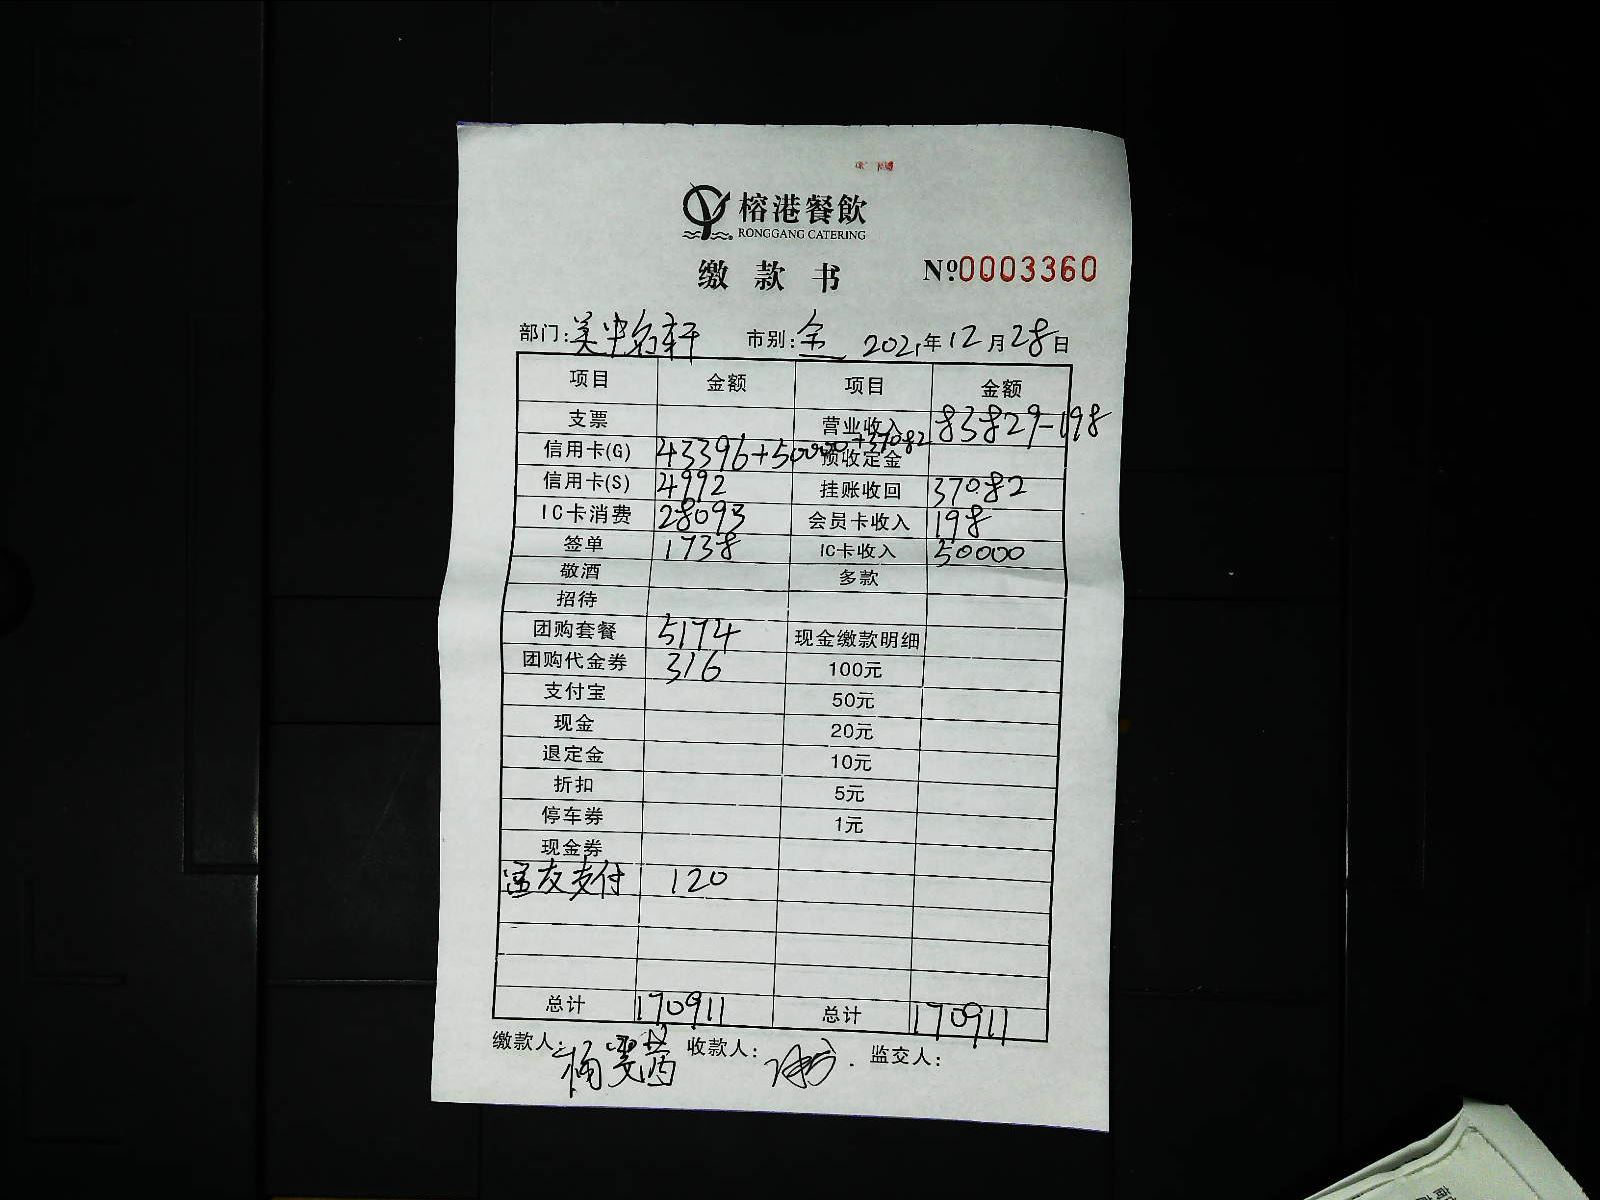 榕港餐飲
RONGGANG CATERING
缴款书 №0003360
部门:美中名轩 市别:全 2021年12月28日
项目 金额 项目 金额
支票 营业收入 83829-198
信用卡(G) 43396+50000+37082 预收定金
信用卡(S) 4992 挂账收回 37082
IC卡消费 28093 会员卡收入 198
签单 1738 IC卡收入 50000
敬酒 多款
招待
团购套餐 5174 现金缴款明细
团购代金券 316 100元
支付宝 50元
现金 20元
退定金 10元
折扣 5元
停车券 1元
现金券
支付 120
总计 170911 总计 170911
缴款人: 收款人: 监交人: